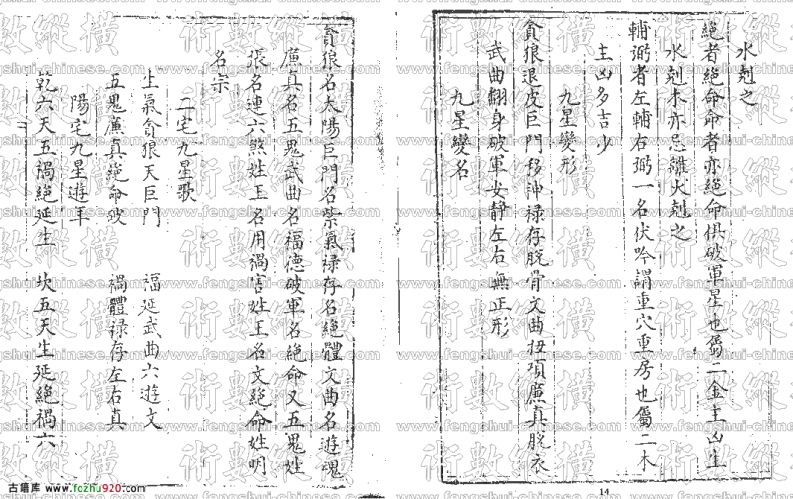 水剋之
絕者絕命命者亦絕命俱破軍星也屬二金主凶生
水剋木亦忌離火剋之
輔弼者左輔右弼一名伏吟謂重穴重房也屬二木
主凶多吉少
九星變形
貪狼退皮巨門移神祿存脫骨文曲扭項廉真脫衣
武曲翻身破軍女靜左右無正形
九星變名
14
貪狼名太陽巨門名紫氣祿存名絕體文曲名遊魂
廉真名五鬼武曲名福德破軍名絕命又五鬼姓
張名連六煞姓王名用禍害姓王名文絕命姓明
名宗
二宅九星歌
生氣貪狼天巨門 福延武曲六遊文
五鬼廉真絕命破 禍體祿存左右真
陽宅九星遊年
乾六天五禍絕延生 坎五天生延絕禍六
術數縱橫
www.fengshui-chinese.com
古籍库 www.fozhu920.com